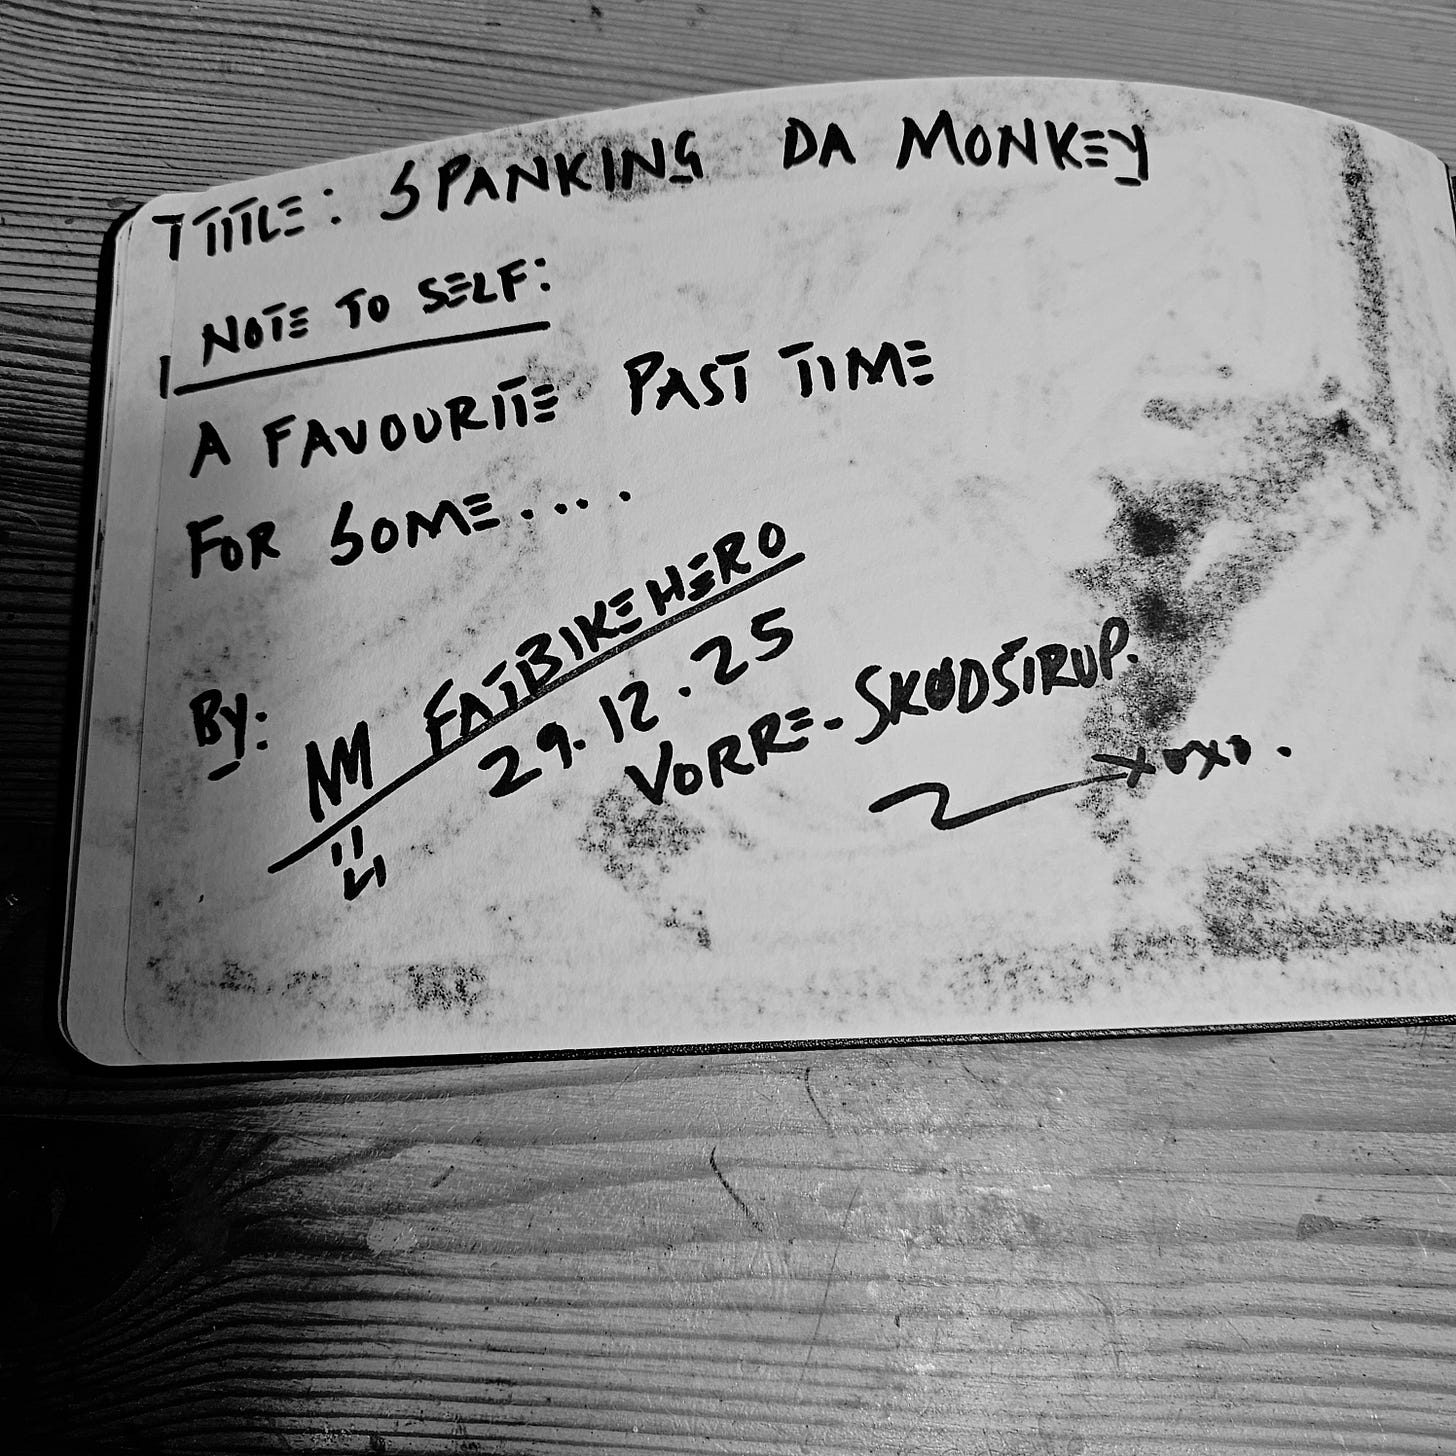 TITLE: SPANKING DA MONKEY
NOTE TO SELF:
A FAVOURITE PAST TIME
FOR SOME....
By: FATBIKEHERO
29.12.25
VORRE-SKØDSTRUP.
xoxo.